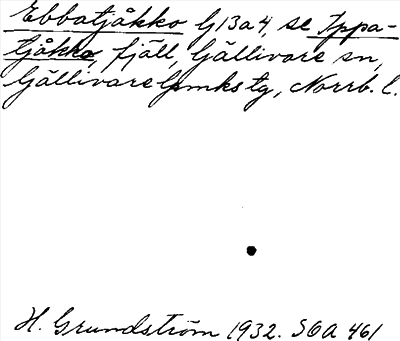 Ebbatjåkko G13a4, se Ippa-
tjåkka, fjäll, Gällivare sn,
Gällivare lpmks tg, Norrb. l.
H. Grundström 1932. SOA 461